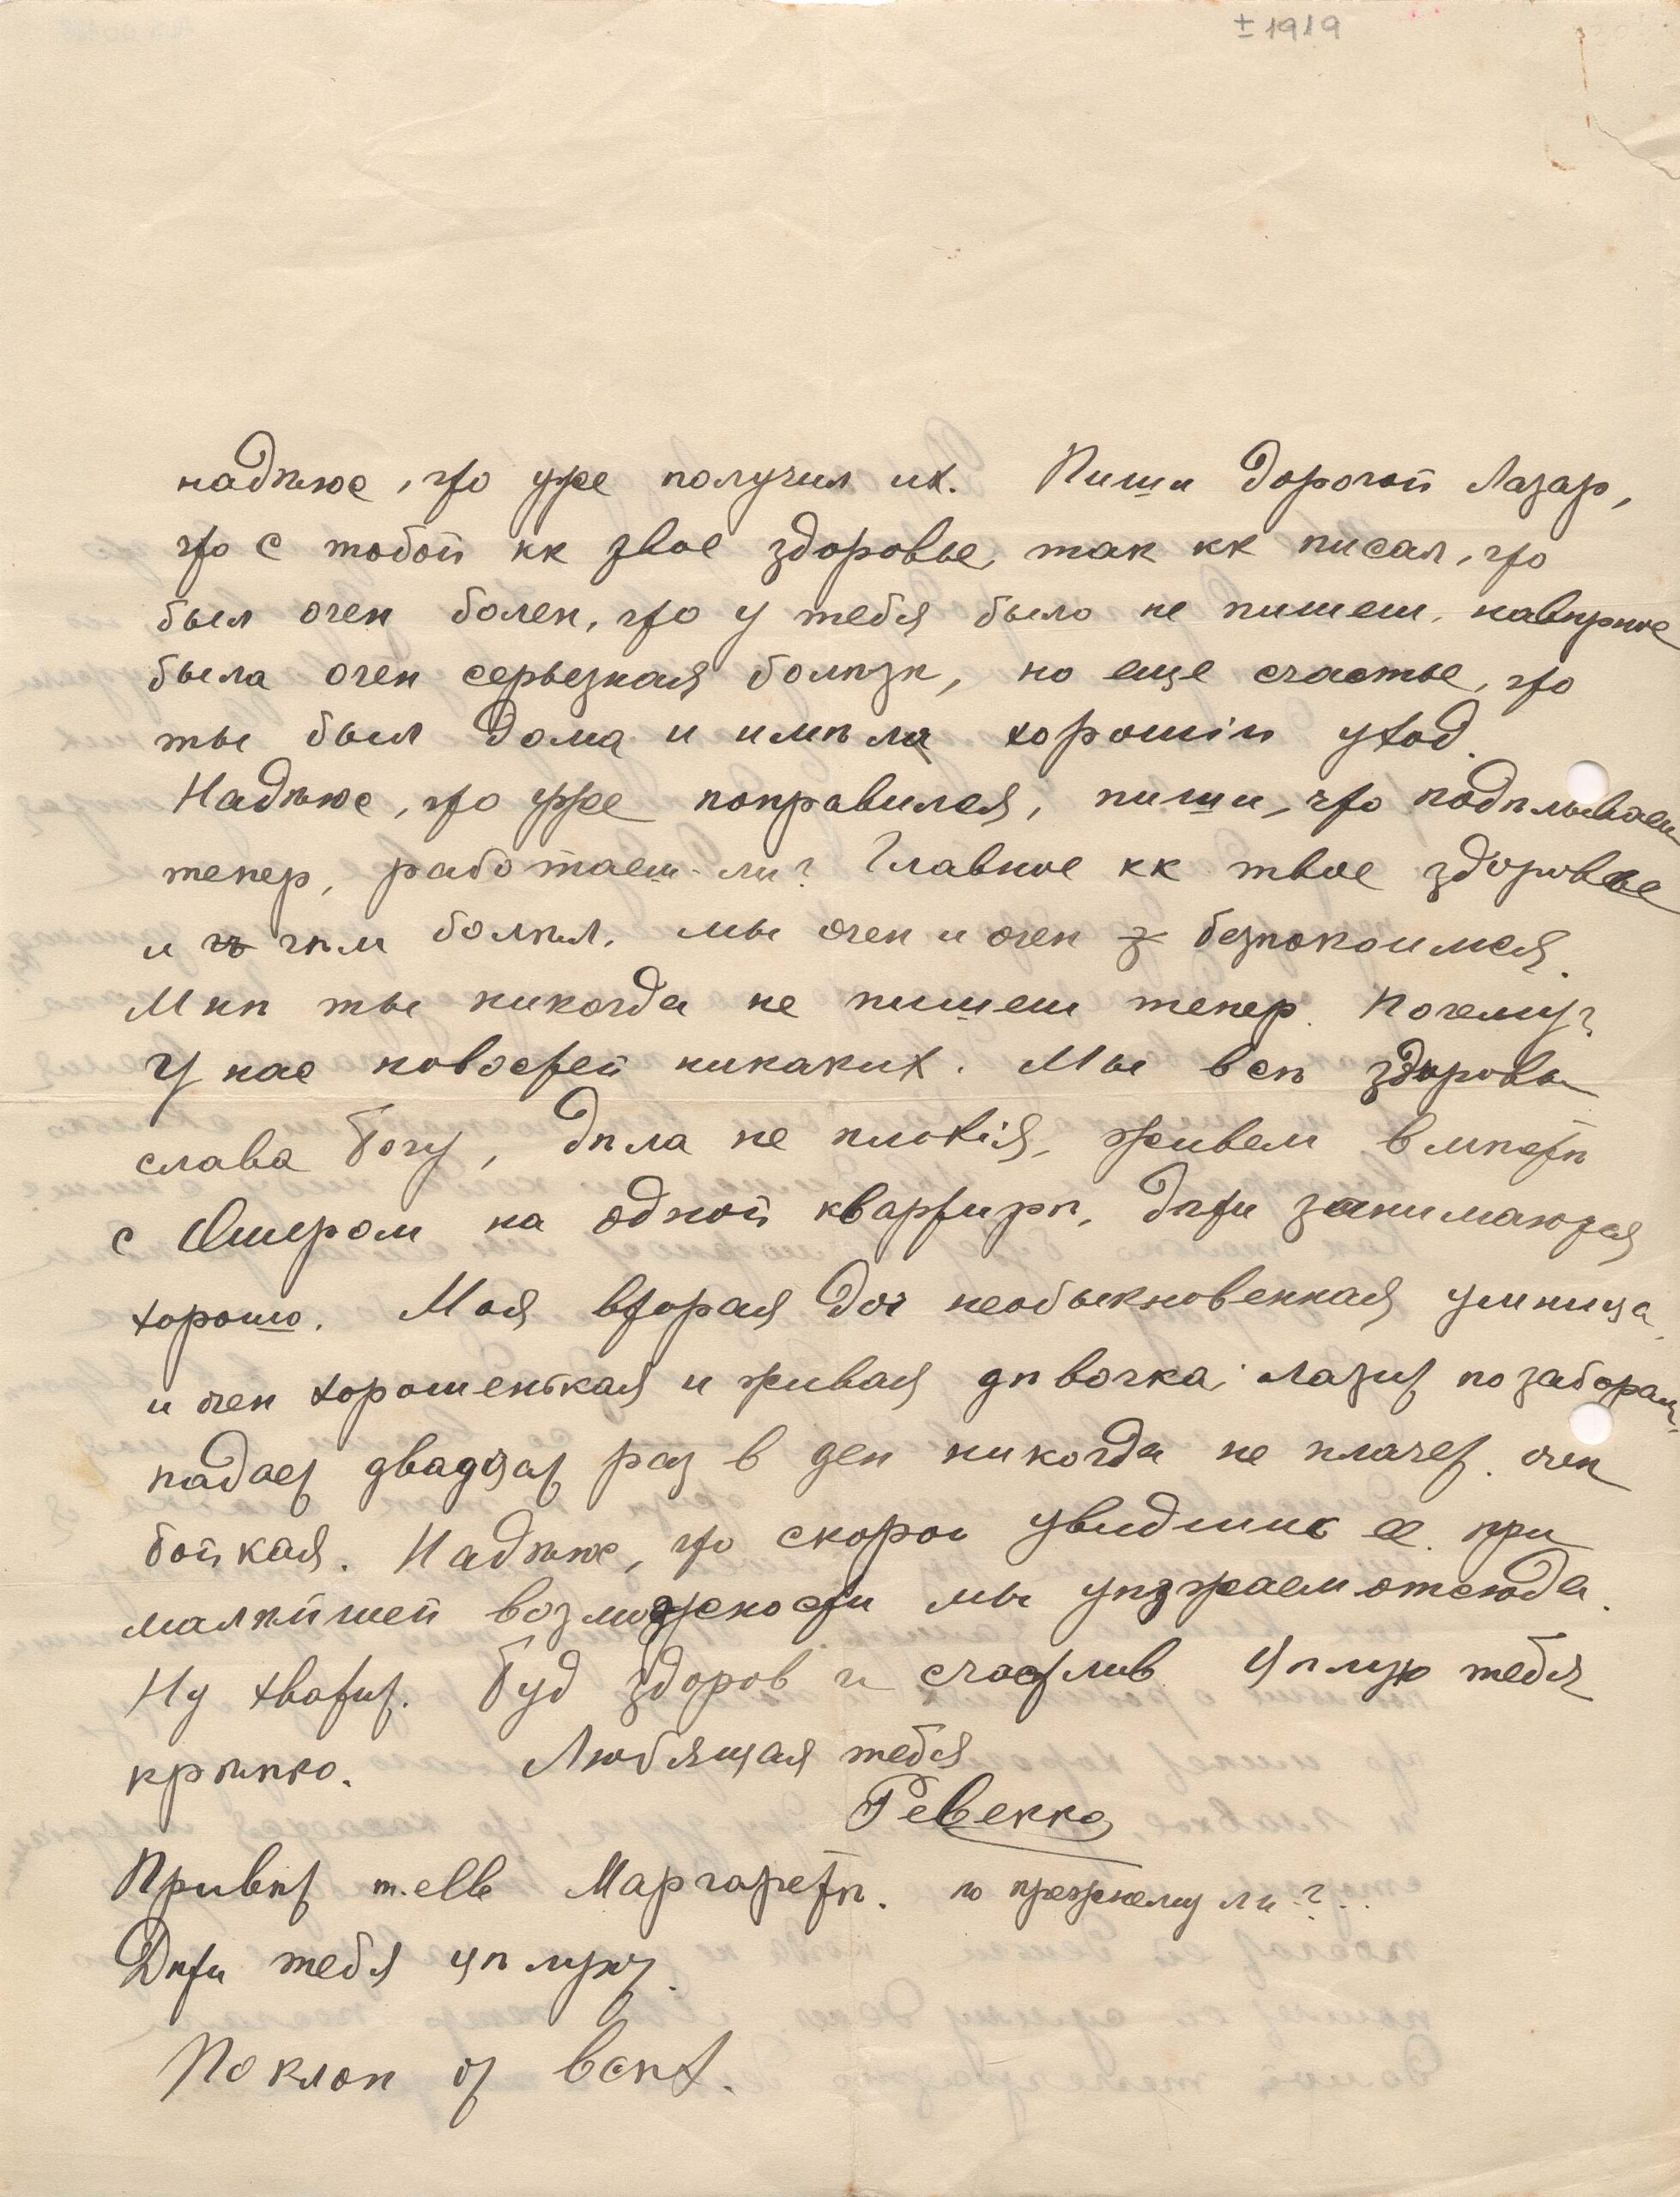 ± 1919
надѣюс, что уже получил их. Пиши дорогой Лазар,
что с тобой кк твое здоровье, так кк писал, что
был очен болен, что у тебя было не пишеш, навѣрное
была очен серьезная болѣзн, но еще счастье, что
ты был дома и имѣл хорошій уход.
Надѣюс, что уже поправился, пиши, что подѣлываеш
тепер, работаеш-ли? Главное кк твое здоровье
и чѣм болѣл. мы очен и очен безпокоимся.
Мнѣ ты никогда не пишеш тепер. Почему?
У нас новостей никаких. Мы всѣ здоровы
слава Богу, дѣла не плохія, живем вмѣстѣ
с Ошером на одной квартирѣ, дѣти занимаются
хорошо. Моя вторая доч необыкновенная умница,
и очен хорошенькая и живая дѣвочка, лазит по заборам,
падает двадцат раз в ден никогда не плачет. очен
бойкая. Надѣюс, что скоро увидиш ее. при
малѣйшей возможности мы уѣзжаем отсюда.
Ну хватит. Буд здоров и счастлив Цѣлую тебя
крѣпко. Любящая тебя
Ревекка
Привѣт m.elle Маргаретѣ. по прежнему ли?..
Дѣти тебя цѣлуют.
Поклон от всѣх.